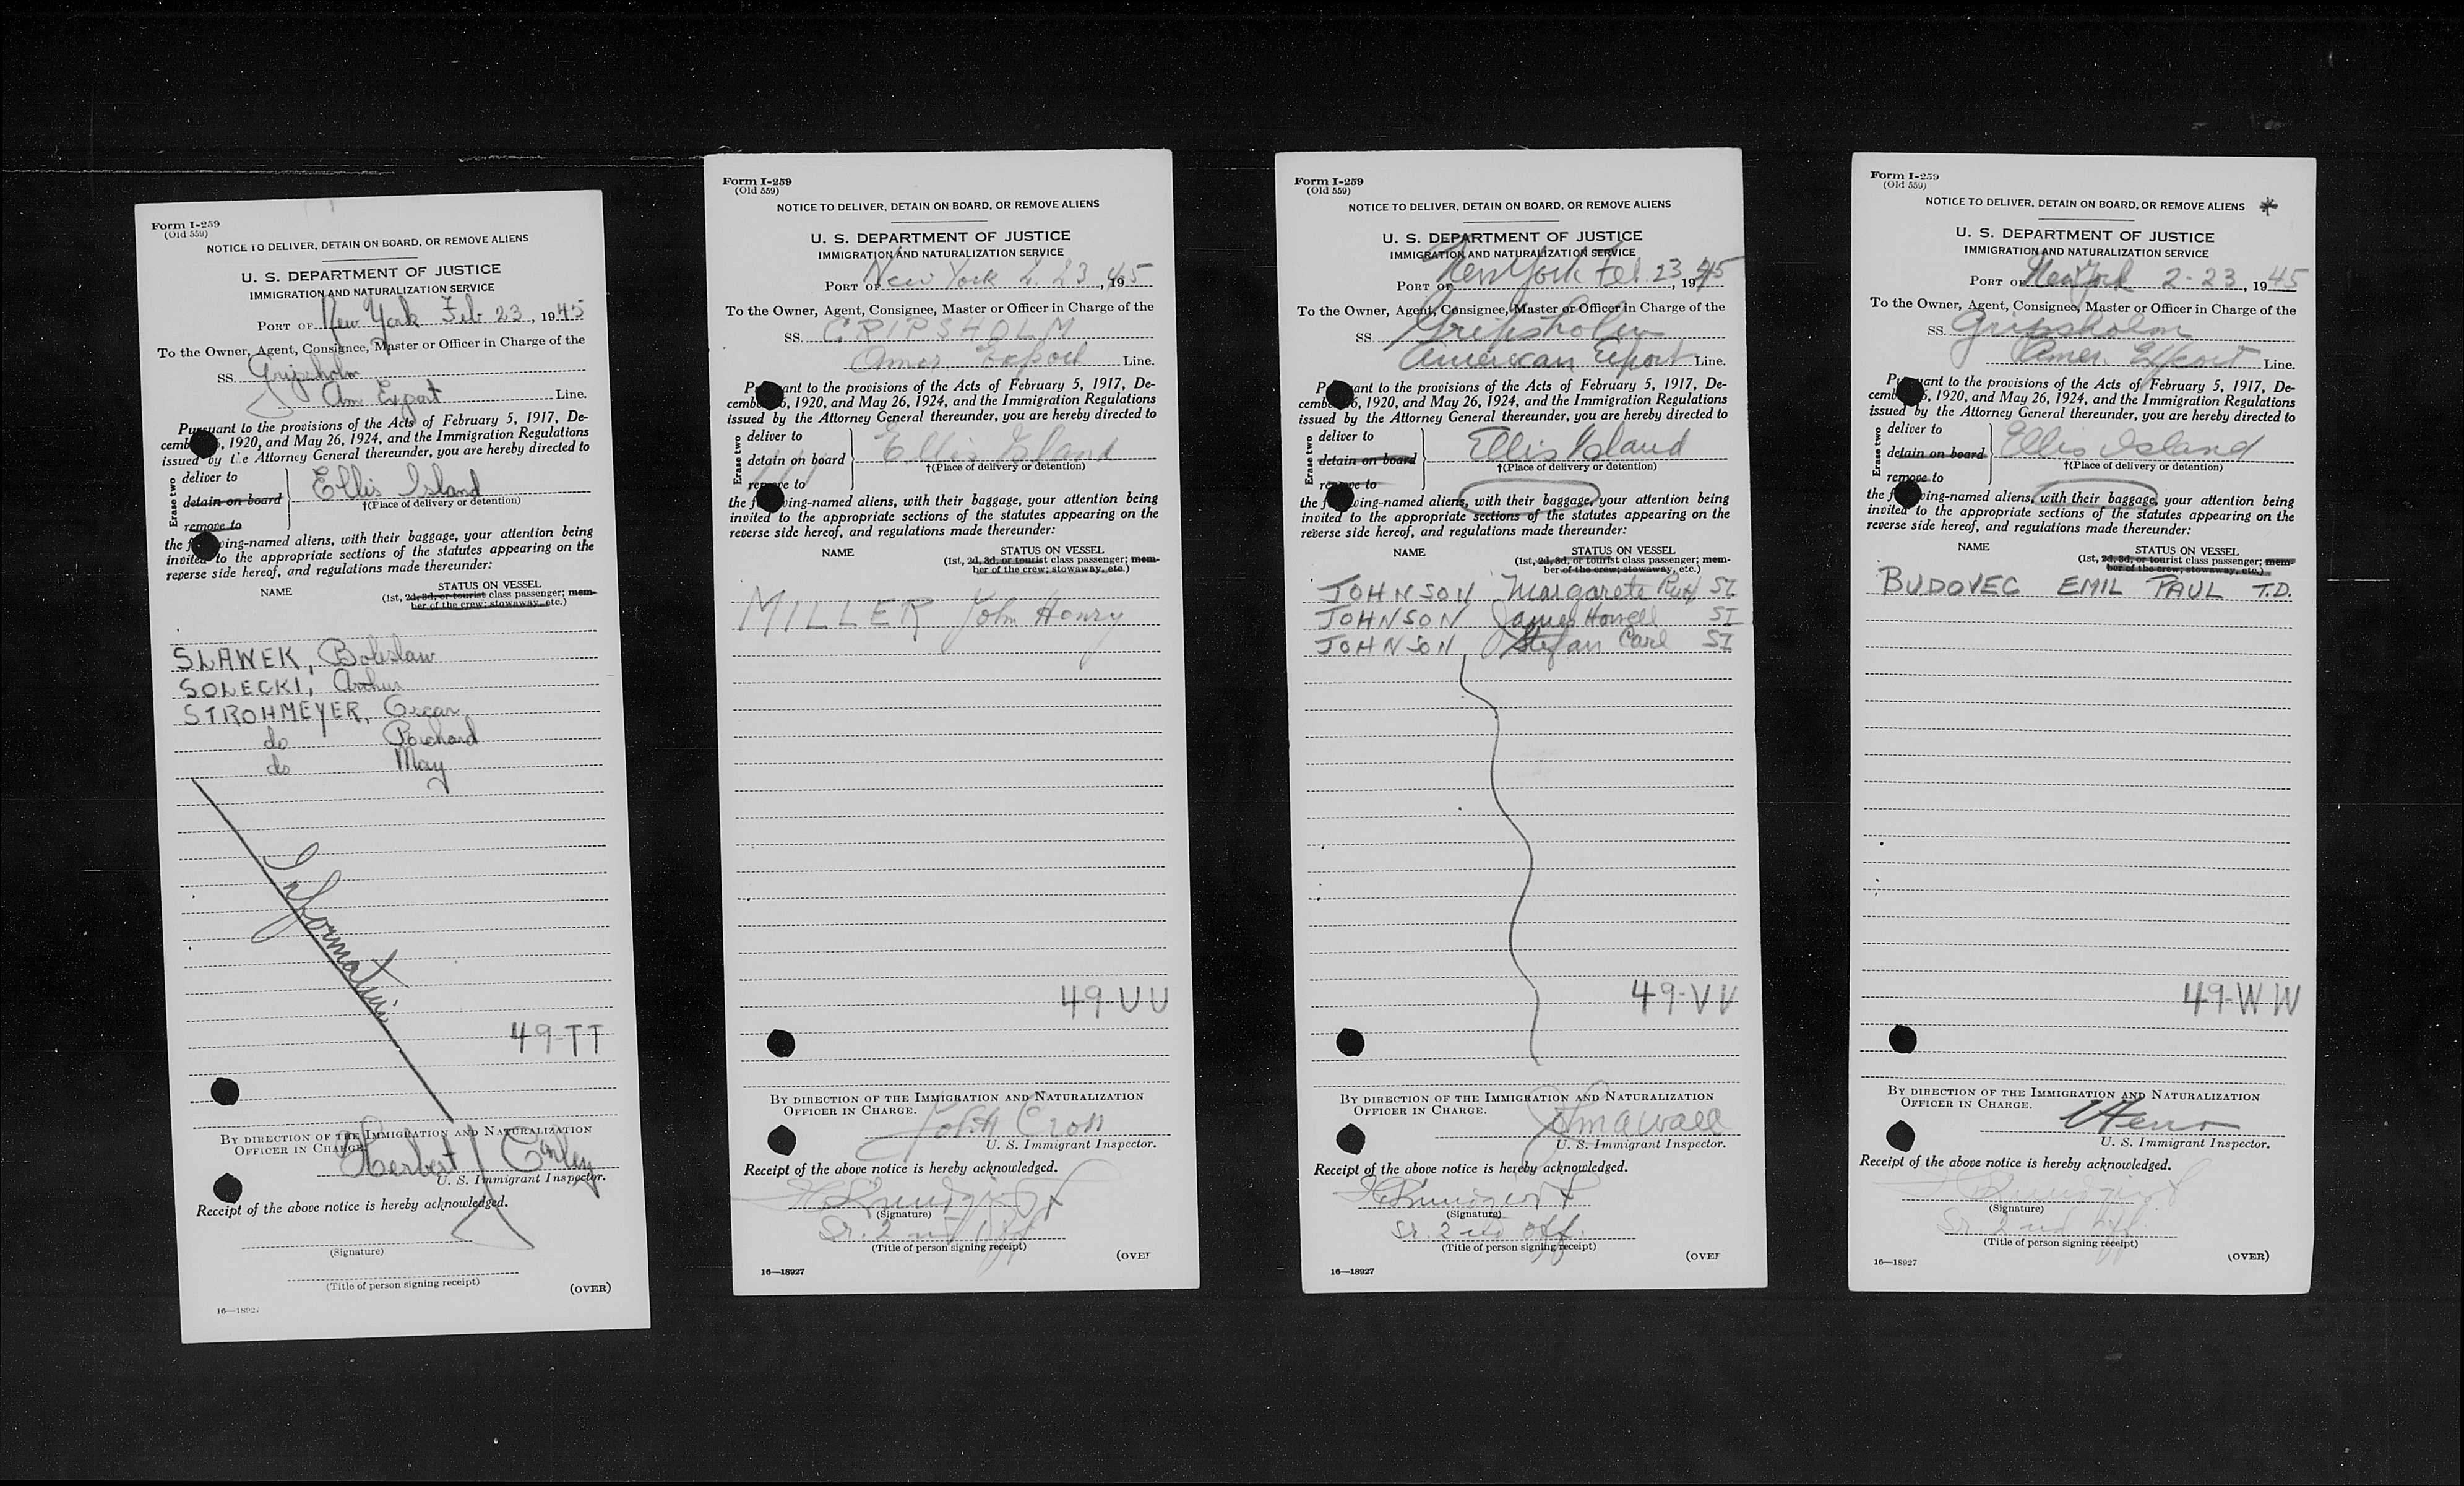 Form I-259
(Old 559)
NOTICE TO DELIVER, DETAIN ON BOARD, OR REMOVE ALIENS
U. S. DEPARTMENT OF JUSTICE
IMMIGRATION AND NATURALIZATION SERVICE
PORT OF New York Feb 23, 1945
To the Owner, Agent, Consignee, Master or Officer in Charge of the
SS. Gripsholm
Am Export Line.
Pursuant to the provisions of the Acts of February 5, 1917, De-
cemb 6, 1920, and May 26, 1924, and the Immigration Regulations
issued by the Attorney General thereunder, you are hereby directed to
Erase two
deliver to
detain on board
remove to
Ellis Island
†(Place of delivery or detention)
the f wing-named aliens, with their baggage, your attention being
invited to the appropriate sections of the statutes appearing on the
reverse side hereof, and regulations made thereunder:
NAME STATUS ON VESSEL
(1st, 2d, 3d, or tourist class passenger; mem-
ber of the crew; stowaway, etc.)
SLAWEK, Boleslaw
SOLECKI, Arthur
STROHMEYER, Oscar
do
do May
Information
49-TT
BY DIRECTION OF THE IMMIGRATION AND NATURALIZATION
OFFICER IN CHARGE.
Herbert Conley
U. S. Immigrant Inspector.
Receipt of the above notice is hereby acknowledged.
(Signature)
(Title of person signing receipt)
(OVER)
16—18927
Form I-259
(Old 559)
NOTICE TO DELIVER, DETAIN ON BOARD, OR REMOVE ALIENS
U. S. DEPARTMENT OF JUSTICE
IMMIGRATION AND NATURALIZATION SERVICE
PORT OF New York 2. 23, 1945
To the Owner, Agent, Consignee, Master or Officer in Charge of the
SS. GRIPSHOLM
Amer Export Line.
P ant to the provisions of the Acts of February 5, 1917, De-
cembe 5, 1920, and May 26, 1924, and the Immigration Regulations
issued by the Attorney General thereunder, you are hereby directed to
Erase two
deliver to
detain on board
remove to
Ellis Island
†(Place of delivery or detention)
the f wing-named aliens, with their baggage, your attention being
invited to the appropriate sections of the statutes appearing on the
reverse side hereof, and regulations made thereunder:
NAME STATUS ON VESSEL
(1st, 2d, 3d, or tourist class passenger; mem-
ber of the crew; stowaway, etc.)
MILLER John Henry
49-UU
BY DIRECTION OF THE IMMIGRATION AND NATURALIZATION
OFFICER IN CHARGE.
John Cross
U. S. Immigrant Inspector.
Receipt of the above notice is hereby acknowledged.
(Signature)
Sr. 2nd Off
(Title of person signing receipt)
(OVER
16—18927
Form I-259
(Old 559)
NOTICE TO DELIVER, DETAIN ON BOARD, OR REMOVE ALIENS
U. S. DEPARTMENT OF JUSTICE
IMMIGRATION AND NATURALIZATION SERVICE
PORT OF New York Feb. 23, 1945
To the Owner, Agent, Consignee, Master or Officer in Charge of the
SS. Gripsholm
American Export Line.
P ant to the provisions of the Acts of February 5, 1917, De-
cembe 6, 1920, and May 26, 1924, and the Immigration Regulations
issued by the Attorney General thereunder, you are hereby directed to
Erase two
deliver to
detain on board
remove to
Ellis Island
†(Place of delivery or detention)
the f wing-named aliens, with their baggage, your attention being
invited to the appropriate sections of the statutes appearing on the
reverse side hereof, and regulations made thereunder:
NAME STATUS ON VESSEL
(1st, 2d, 3d, or tourist class passenger; mem-
ber of the crew; stowaway, etc.)
JOHNSON Margarete Ruth SI
JOHNSON James Howell SI
JOHNSON Stefan Carl SI
49-VV
BY DIRECTION OF THE IMMIGRATION AND NATURALIZATION
OFFICER IN CHARGE.
U. S. Immigrant Inspector.
Receipt of the above notice is hereby acknowledged.
(Signature)
Sr. 2nd off.
(Title of person signing receipt)
(OVER
16—18927
Form I-259
(Old 559)
NOTICE TO DELIVER, DETAIN ON BOARD, OR REMOVE ALIENS *
U. S. DEPARTMENT OF JUSTICE
IMMIGRATION AND NATURALIZATION SERVICE
PORT OF New York 2-23, 1945
To the Owner, Agent, Consignee, Master or Officer in Charge of the
SS. Gripsholm
Amer. Export Line.
P ant to the provisions of the Acts of February 5, 1917, De-
cemb 5, 1920, and May 26, 1924, and the Immigration Regulations
issued by the Attorney General thereunder, you are hereby directed to
Erase two
deliver to
detain on board
remove to
Ellis Island
†(Place of delivery or detention)
the f wing-named aliens, with their baggage, your attention being
invited to the appropriate sections of the statutes appearing on the
reverse side hereof, and regulations made thereunder:
NAME STATUS ON VESSEL
(1st, 2d, 3d, or tourist class passenger; mem-
ber of the crew; stowaway, etc.)
BUDOVEC EMIL PAUL T.D.
49-WW
BY DIRECTION OF THE IMMIGRATION AND NATURALIZATION
OFFICER IN CHARGE.
U. S. Immigrant Inspector.
Receipt of the above notice is hereby acknowledged.
(Signature)
Sr. 2nd Off.
(Title of person signing receipt)
(OVER)
16—18927